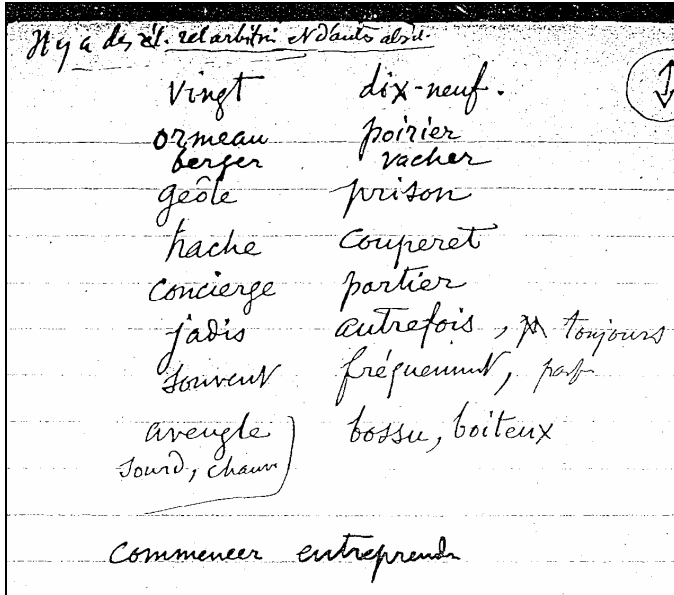 Il y a des él. rel arbitri et d'autr absol.
vingt dix-neuf.
ormeau poirier
berger vacher
geôle prison
hache couperet
concierge portier
jadis autrefois, toujours
souvent fréquemmt, parf
aveugle bossu, boiteux
sourd, chauve
commencer entreprendre